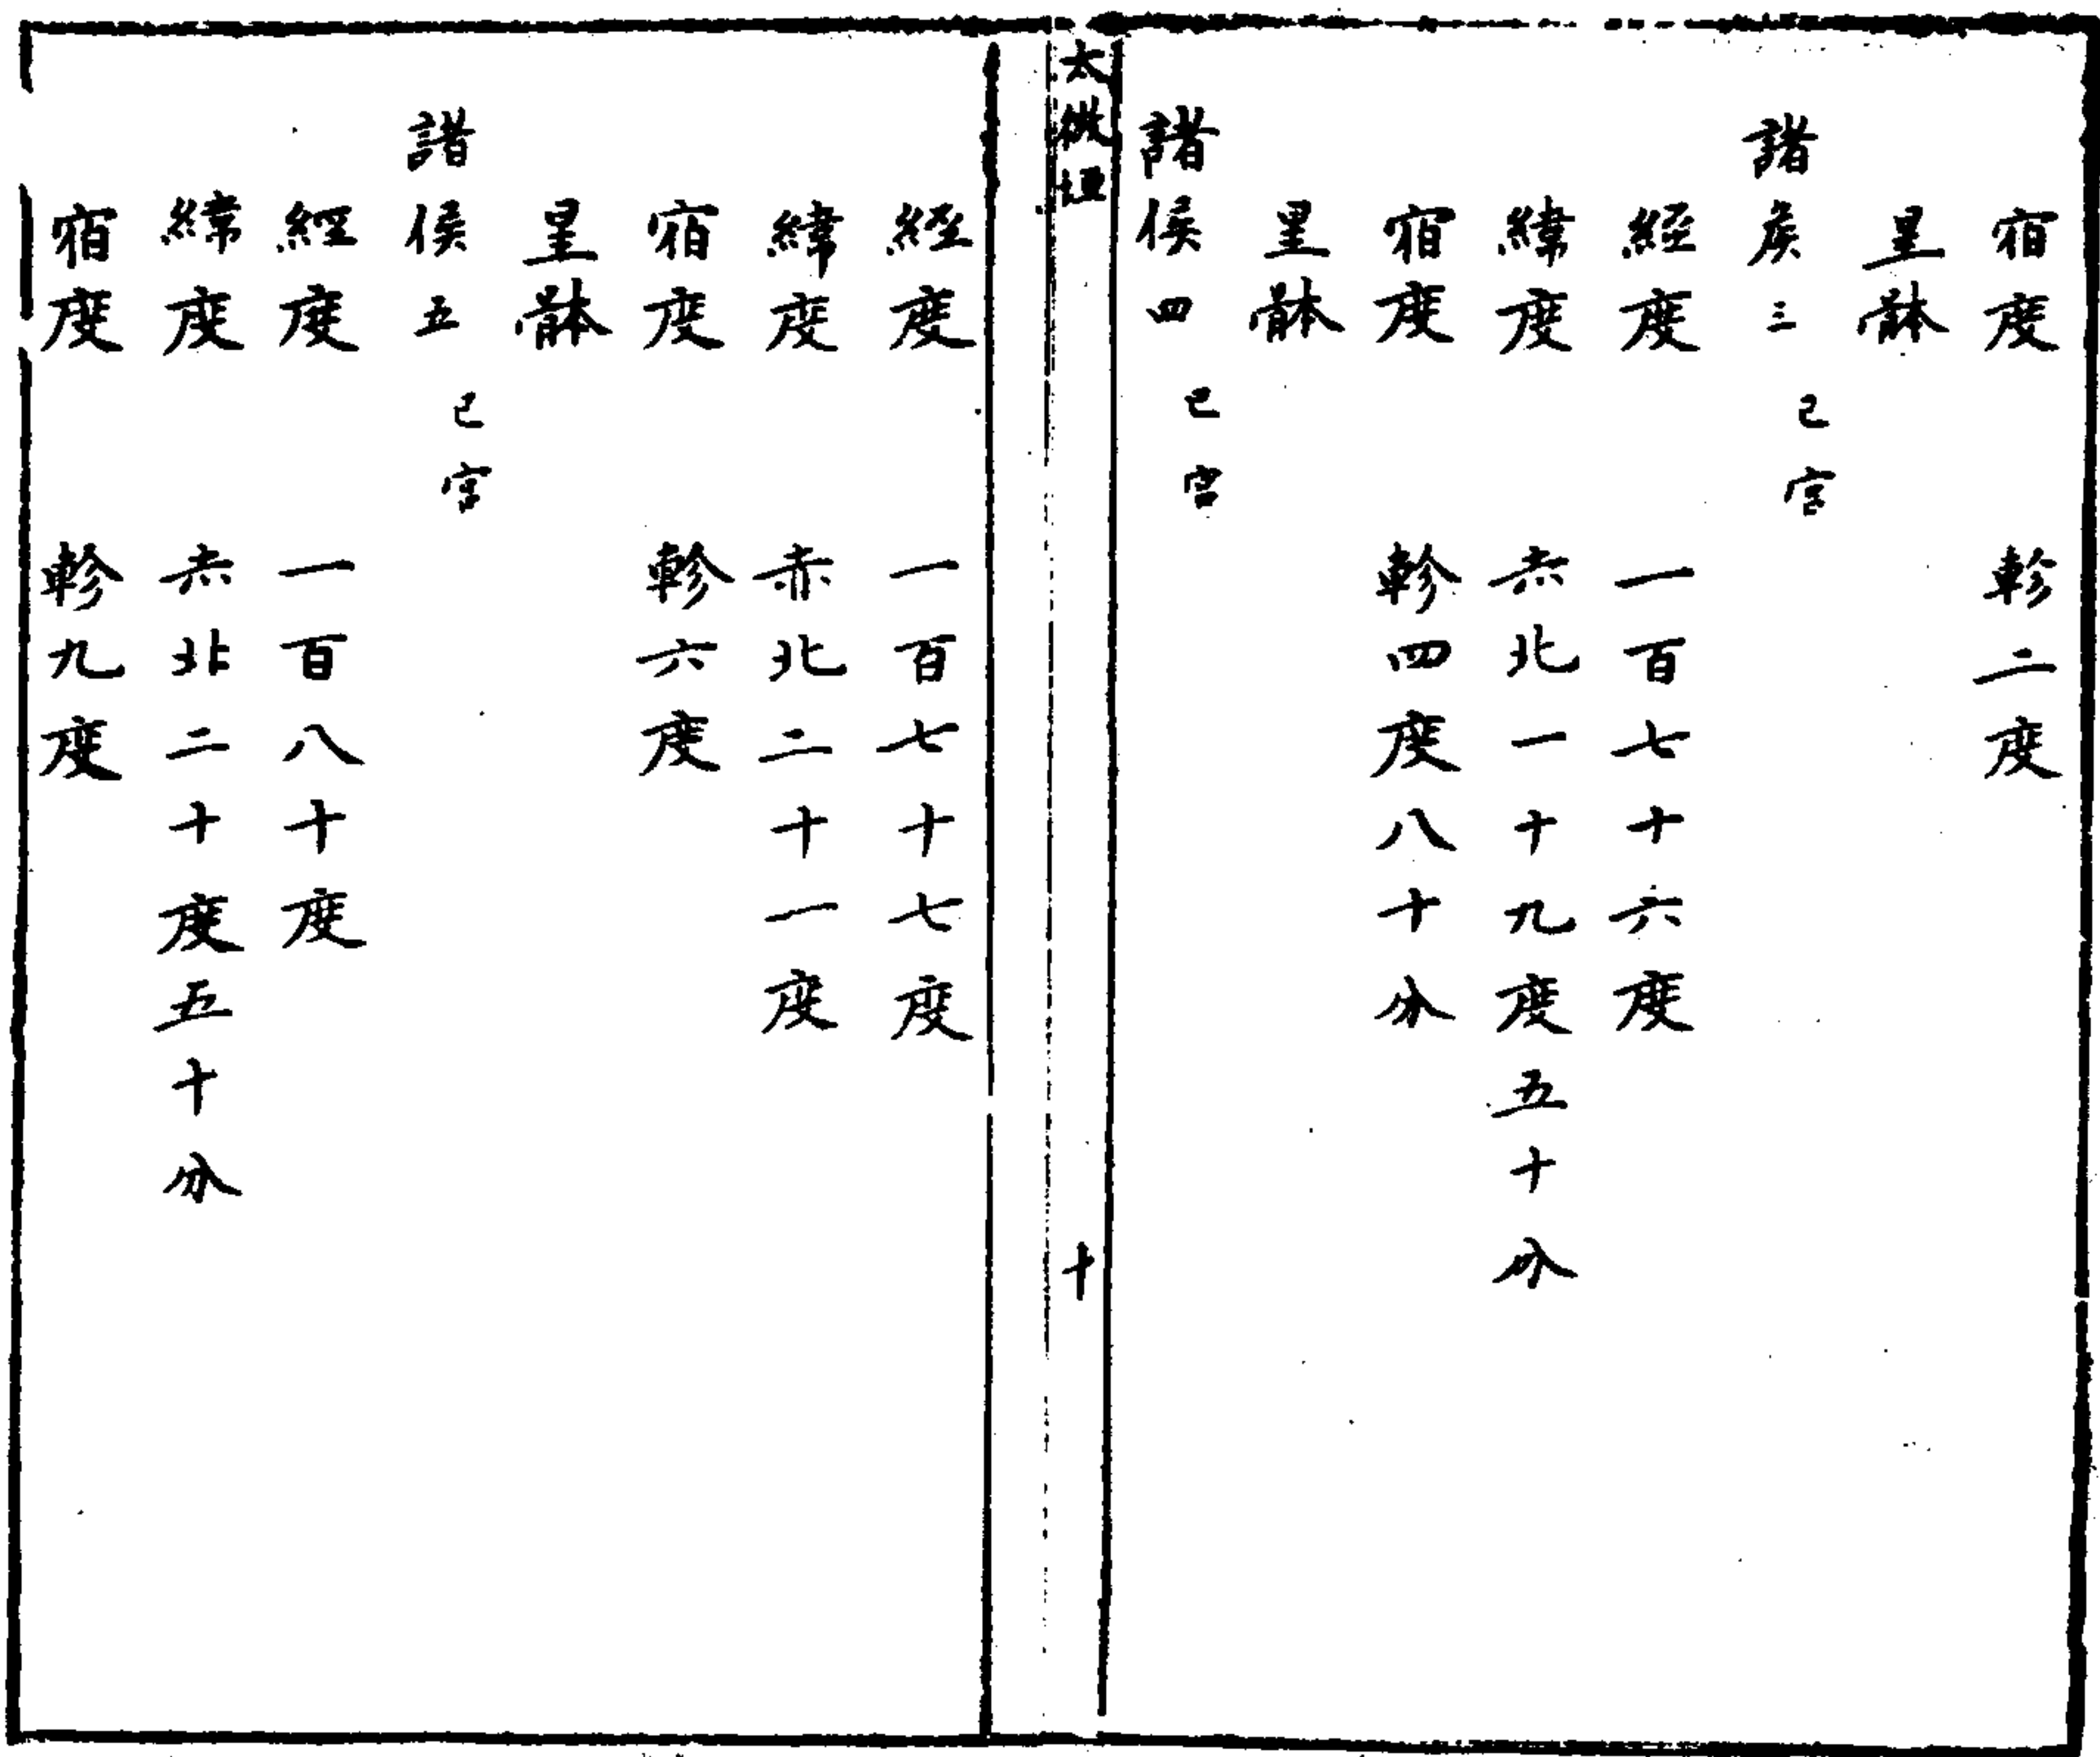 宿度 軫二度
星躰
諸矦三 巳宮
經度 一百七十六度
緯度 赤北一十九度五十分
宿度 軫四度八十分
星躰
諸侯四 巳宮
太微垣 十
經度 一百七十七度
緯度 赤北二十一度
宿度 軫六度
星躰
諸侯五 巳宮
經度 一百八十度
緯度 赤北二十度五十分
宿度 軫九度